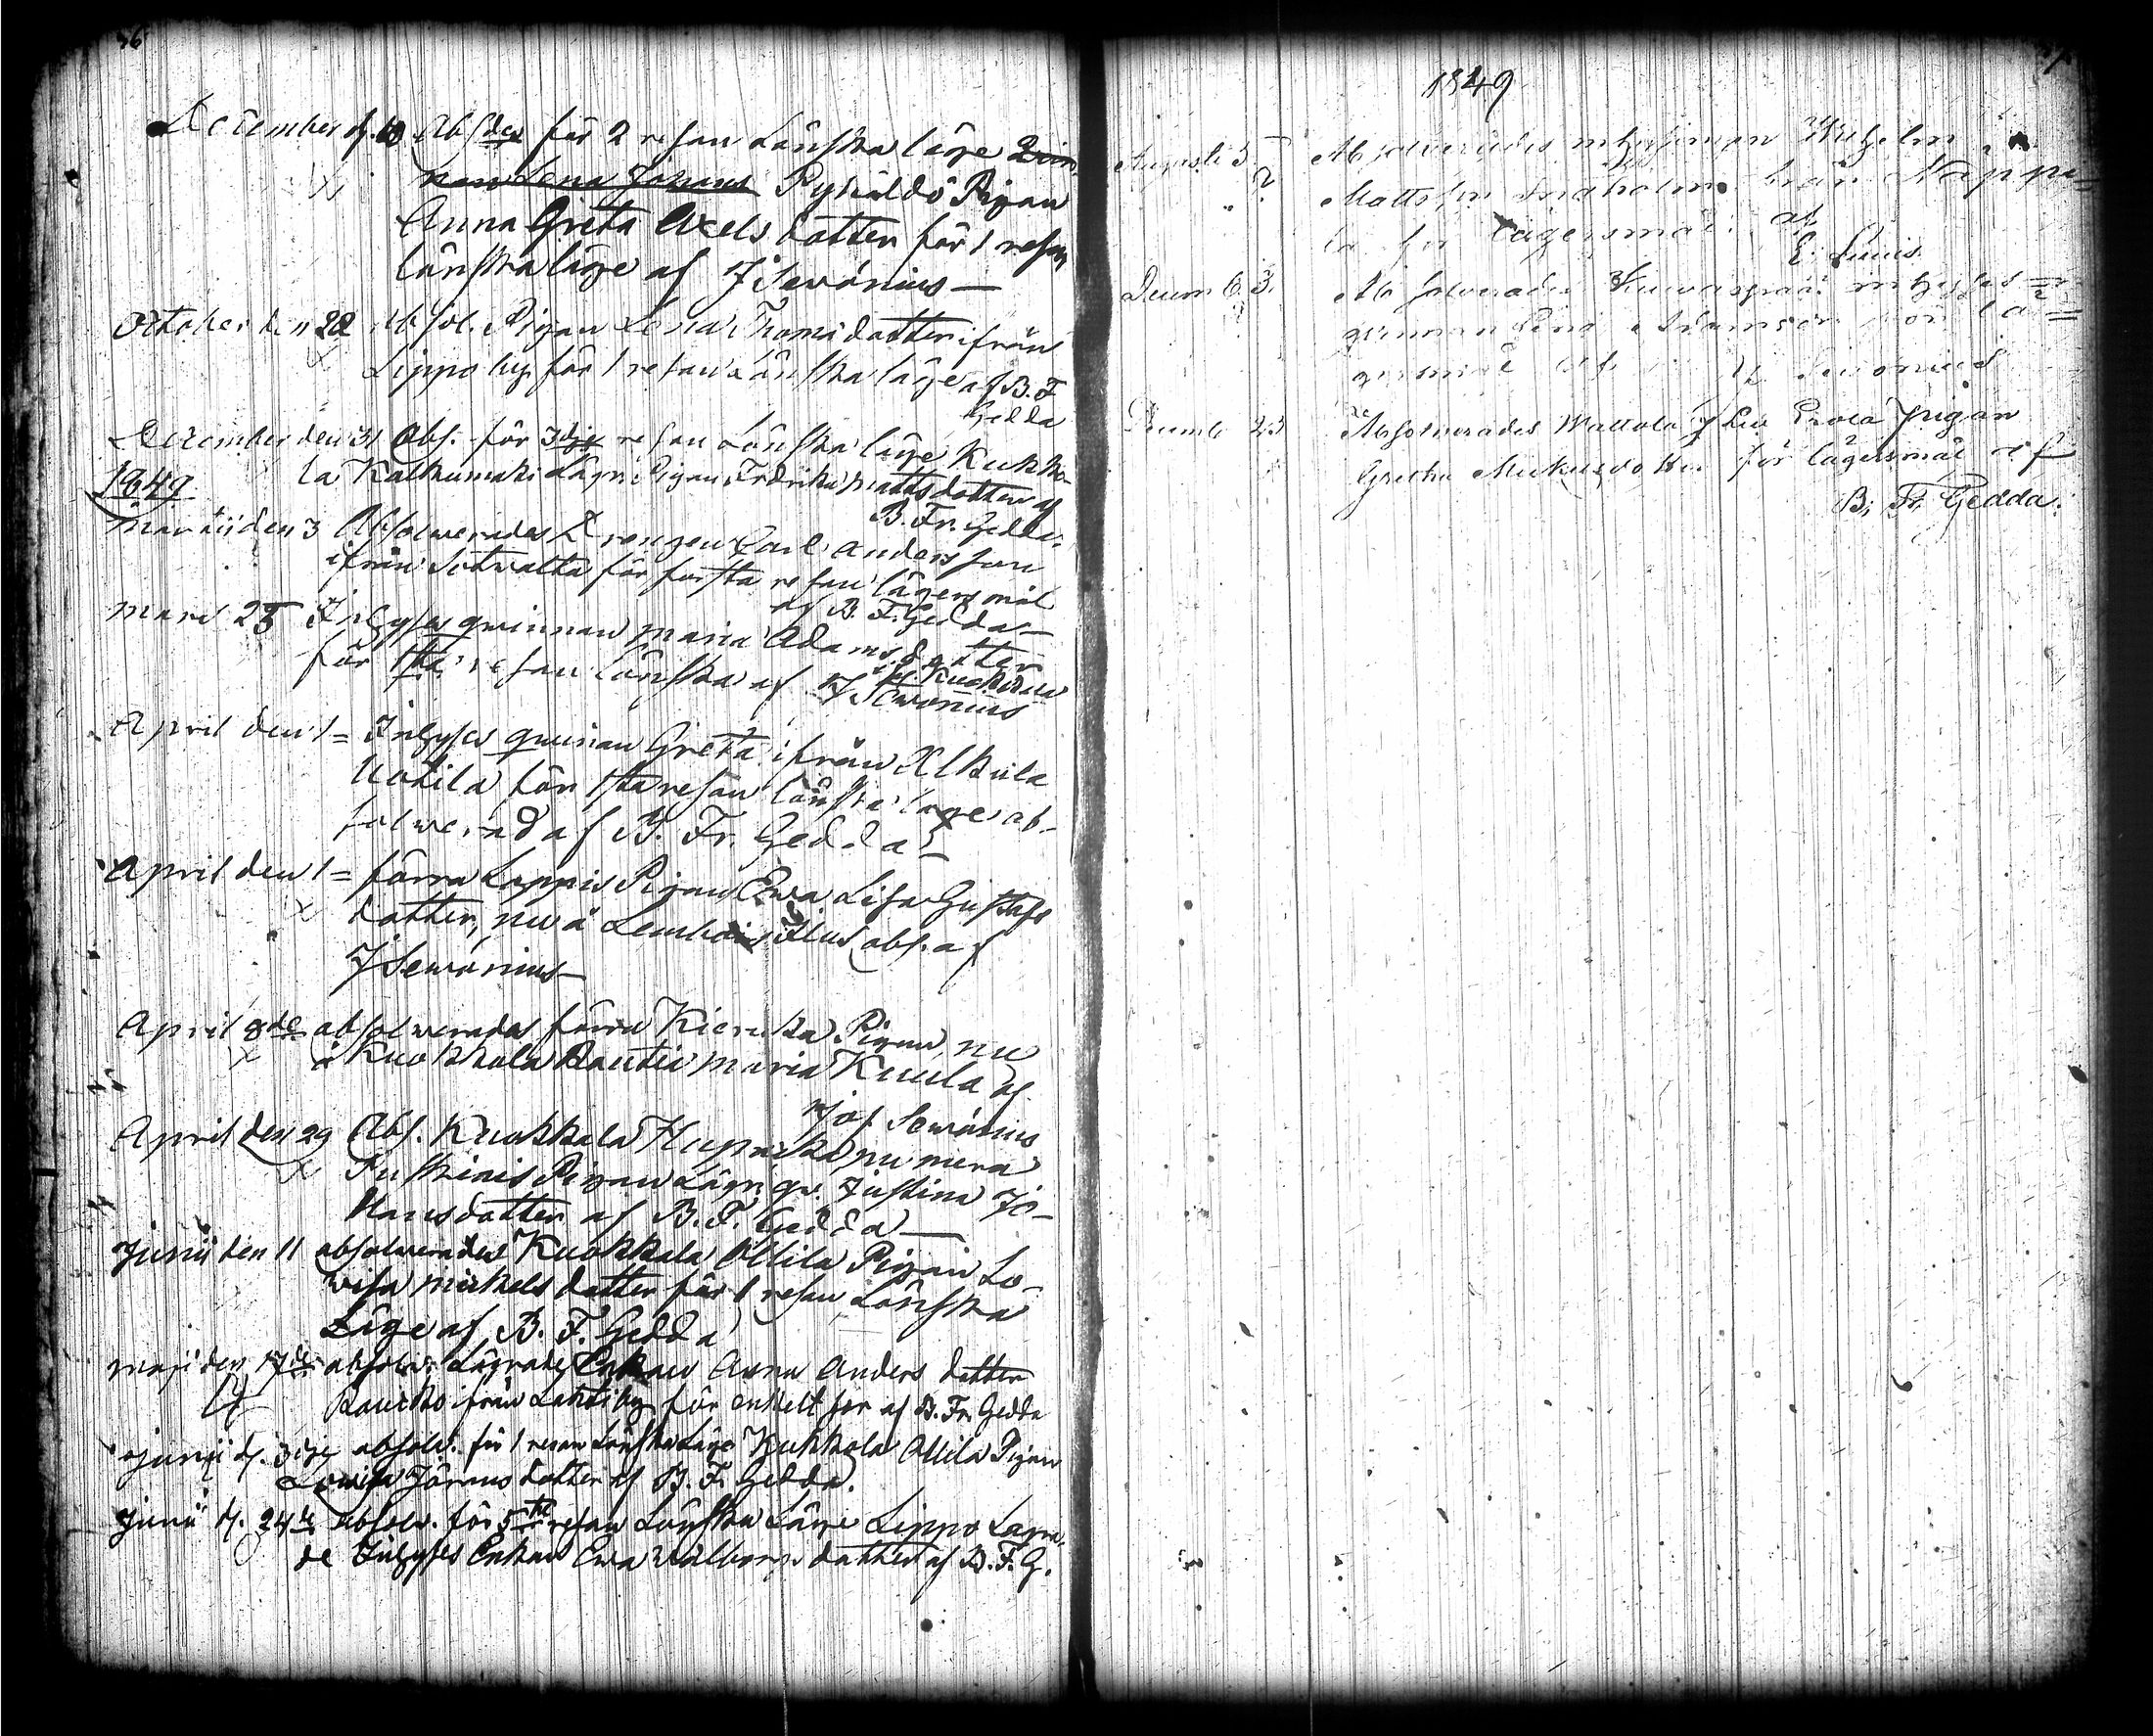 December d. 10 Abs des för 2 resan Lönska läge Qvin
nan Lena Johans Pyhäldö Pigan
Anna Greta Axels dotter för 1 resan
lönska läge af J Sevónius —
October den 28 absol. Pigan Lena Thoms dotter ifrån
Lippo by för 1 resan Lönska läge af B. F
Gedda
December den 31 Abs. för 3dje resan Lönska läge Kukko-
1849 la Kalkumaki Lägr. Pigan Fredrika Mattsdotter af
B. Fr. Gedda
martii den 3 Absolwerades Drengen Carl Andersson
ifrån Sotwalta för första resan lägersmål
af B. F. Gedda —
mars 25 Inhyses qwinnan maria Adams dotter
Kuokkala
för 1sta resan lönska af J. Sewonius
April den 1 = Inhyses qwinan Greta ifrån Alkula
Uotila för 1sta resan lönska läge ab-
solwerad af B. Fr. Gedda —
April den 1 = förra Lappis Pigan Ewa Lisa Gustafs
dotter, nu å Lembois abs. af
J Sewónius —
April 8de absolwerades förra Pigan, nu
å Kuokkala Rautia maria Kuula af
Jos Sewónius
April den 29 Abs. Kuokkala numera
Pigan Lägr. qv. Justina Jo-
hansdotter af B. F. Gedda —
Junii den 11 absolwerades Kuokkala Ollila Pigan Lo-
wisa mickels dotter för 1 resan Lönska
Läge af B. F. Gedda
maji den 17de absolw. Lägrade Enkan Anna Anders dotter
Rausko ifrån Lahtis by för enkelt hor af B. Fr. Gedda
junii d. 3dje absolv. för 1 resan Lönska Läge Kukkola Ollila Pigan
Lowisa Jörans dotter af B. F. Gedda.
Junii d. 24de absolv. för 5te resan Lönska Läge Lippo Lägra-
de Inhyses Enkan Ewa Walborgs dotter af B. F. G.
1849
Augusti 5 Absolverades inhysingen Wilhelm
Mattsson Lindholm från Nappi-
la för lägersmål af
E.
Decem b. 3. Absolverades inhyses =
qvinnan Lena Adamsdr för lä =
gersmål af J. Sevonius
Decemb 23 Absolverades Mattola Pigan
Gretha dotter för lägersmål af
B. Fr. Gedda.